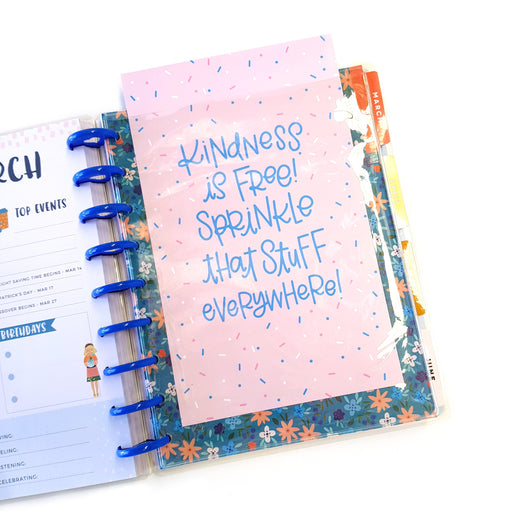 RCH
TOP EVENTS
GHT SAVING TIME BEGINS - MAR 14
PATRICK'S DAY - MAR 17
SSOVER BEGINS - MAR 27
BIRTHDAYS
VING:
ELING:
ISTENING:
CELEBRATING:
KiNDNESS
iS FREE!
SPRiNKLE
tHAt StUFF
eVeRYWHeRe!
MARCH
JUNE